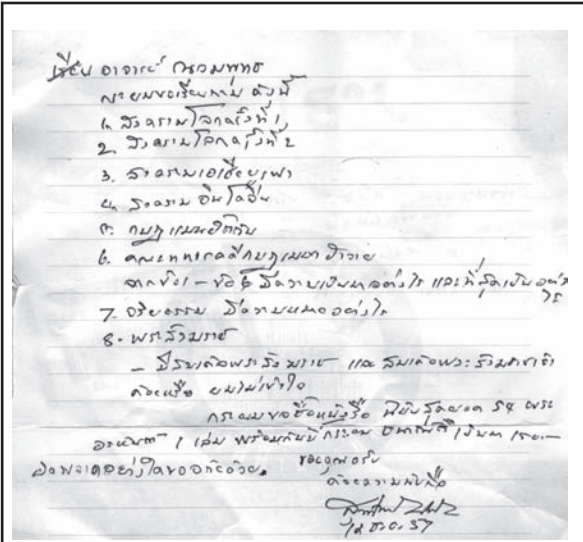 เรียน อาจารย์ ณวมพุทธ
กระผมขอเรียนถาม ดังนี้
1. สงครามโลกครั้งที่ 1
2. สงครามโลกครั้งที่ 2
3. สงครามเอเชียบูรพา
4. สงคราม อินโดจีน
๕. กบฏแมนฮัตตัน
6. คณะทหาร กบฏเมษาฮาวาย
จากข้อ 1 - ข้อ 6 มีความเป็นมาอย่างไร และที่สุดเป็นอย่าง
ไร
7. อริยธรรม มีความหมายอย่างไร
8. พระสังฆราช
- มีสมเด็จพระสังฆราช และ สมเด็จพระสังฆราชเจ้า
ด้วยหรือ ผมไม่เข้าใจ
กระผมขอซื้อหนังสือ สุดยอด 54 พระ
อรหันต์ 1 เล่ม พร้อมกันนี้กระผม เป็นเงิน
ผิดพลาดอย่างใดขออภัยด้วย.
ขอบคุณครับ
ด้วยความนับถือ
ธ.ค. 57